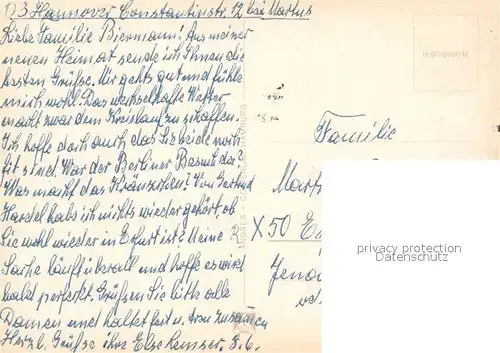 D3 Hannover Constantinstr. 12 bei Martus
Liebe Familie Biermann! Aus meiner
neuen Heimat sende ich Ihnen die
besten Grüße. Mir gehts gut und fühle
mich wohl. Das wechselhafte Wetter
macht zwar dem Kreislauf zu schaffen.
Ich hoffe doch auch das Sie beide noch
fit sind. War der Berliner Besuch da?
Was macht das Kränzchen? Von Gertrud
Handel hab ich nichts wieder gehört, ob
Sie wohl wieder in Erfurt ist? Meine R
Sache läuft überall und hoffe es wird
bald perfekt. Grüßen Sie bitte alle
Damen und haltet fest u. treu zusammen
Herzl. Grüße ihre 8.6.
Familie
Mart
X50 E
Jena
privacy protection
Datenschutz